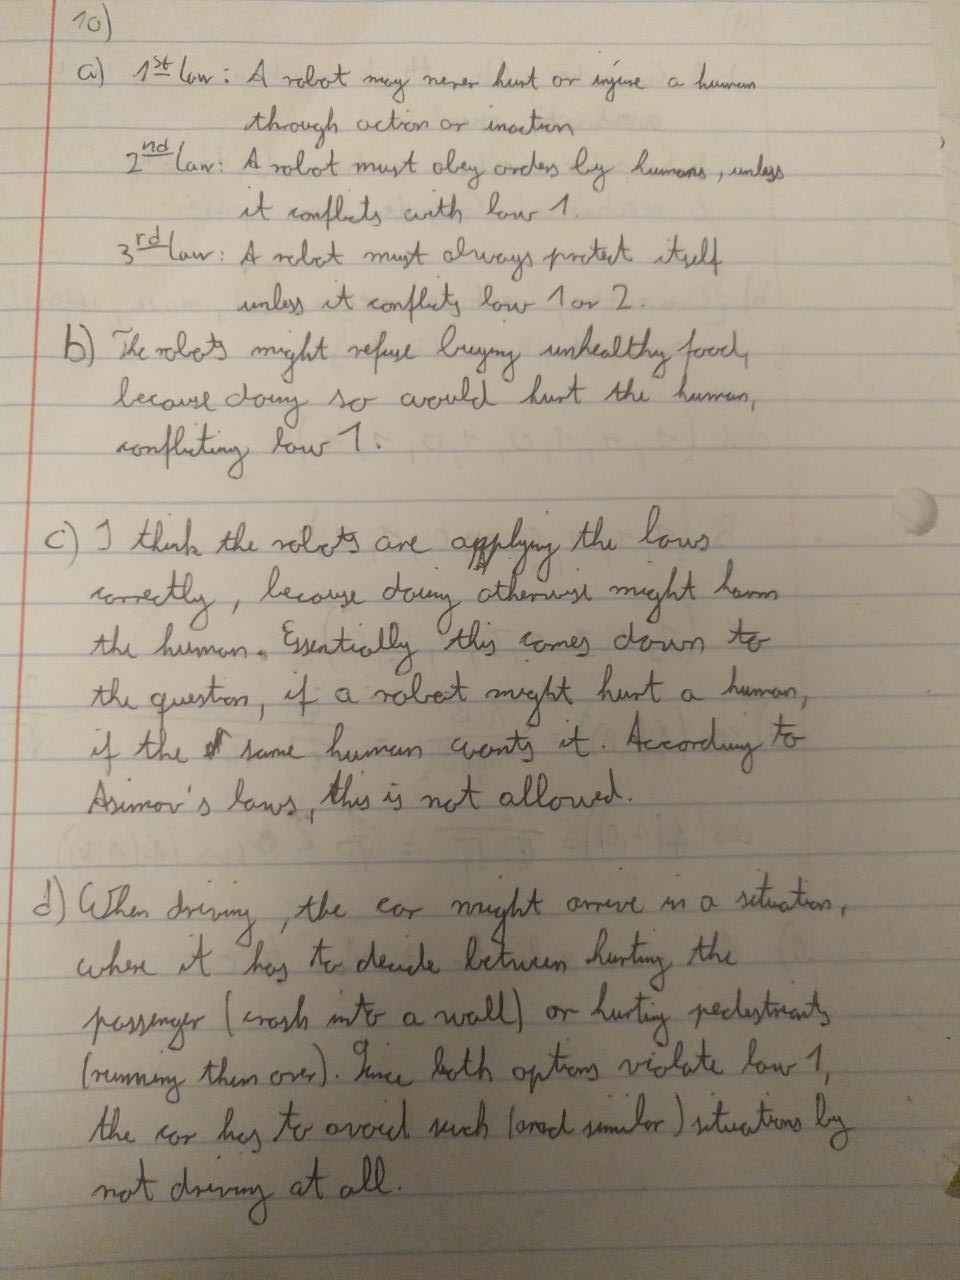 10)
a) 1st law: A robot may never hurt or injure a human
through action or inaction
2nd law: A robot must obey orders by humans, unless
it conflicts with law 1.
3rd law: A robot must always protect itself
unless it conflicts law 1 or 2.
b) The robots might refuse buying unhealthy food,
because doing so would hurt the human,
conflicting law 1.
c) I think the robots are applying the laws
correctly, because doing otherwise might harm
the human. Essentially this comes down to
the question, if a robot might hurt a human,
if the same human wants it. According to
Asimov's laws, this is not allowed.
d) When driving, the car might arrive in a situation,
where it has to decide between hurting the
passenger (crash into a wall) or hurting pedestriants
(running them over). Since both options violate law 1,
the car has to avoid such (and similar) situations by
not driving at all.